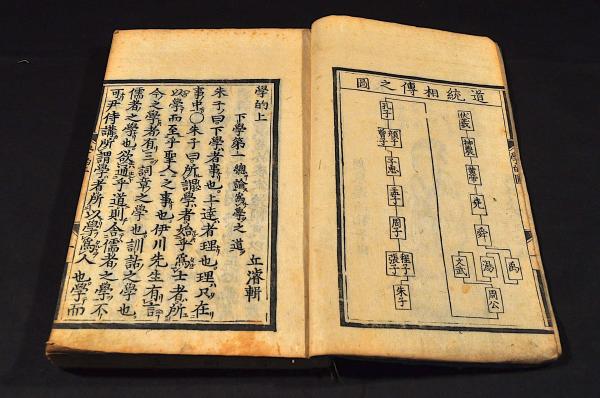 道統相傳之圖
伏羲
神農
黃帝
堯
舜
禹
湯
文武
周公
孔子
顏子
曾子
子思
孟子
周子
程子
張子
朱子
學的上
丘濬輯
下學第一 總論爲學之道
朱子曰下學者事也上達者理也理只在
事中○朱子曰所謂學者始乎爲士者所
以學而至乎聖人之事也伊川先生有言
今之學者有三詞章之學也訓詁之學也
儒者之學也欲通乎道則舍儒者之學不
可尹侍講所謂學者所以學爲人也學而